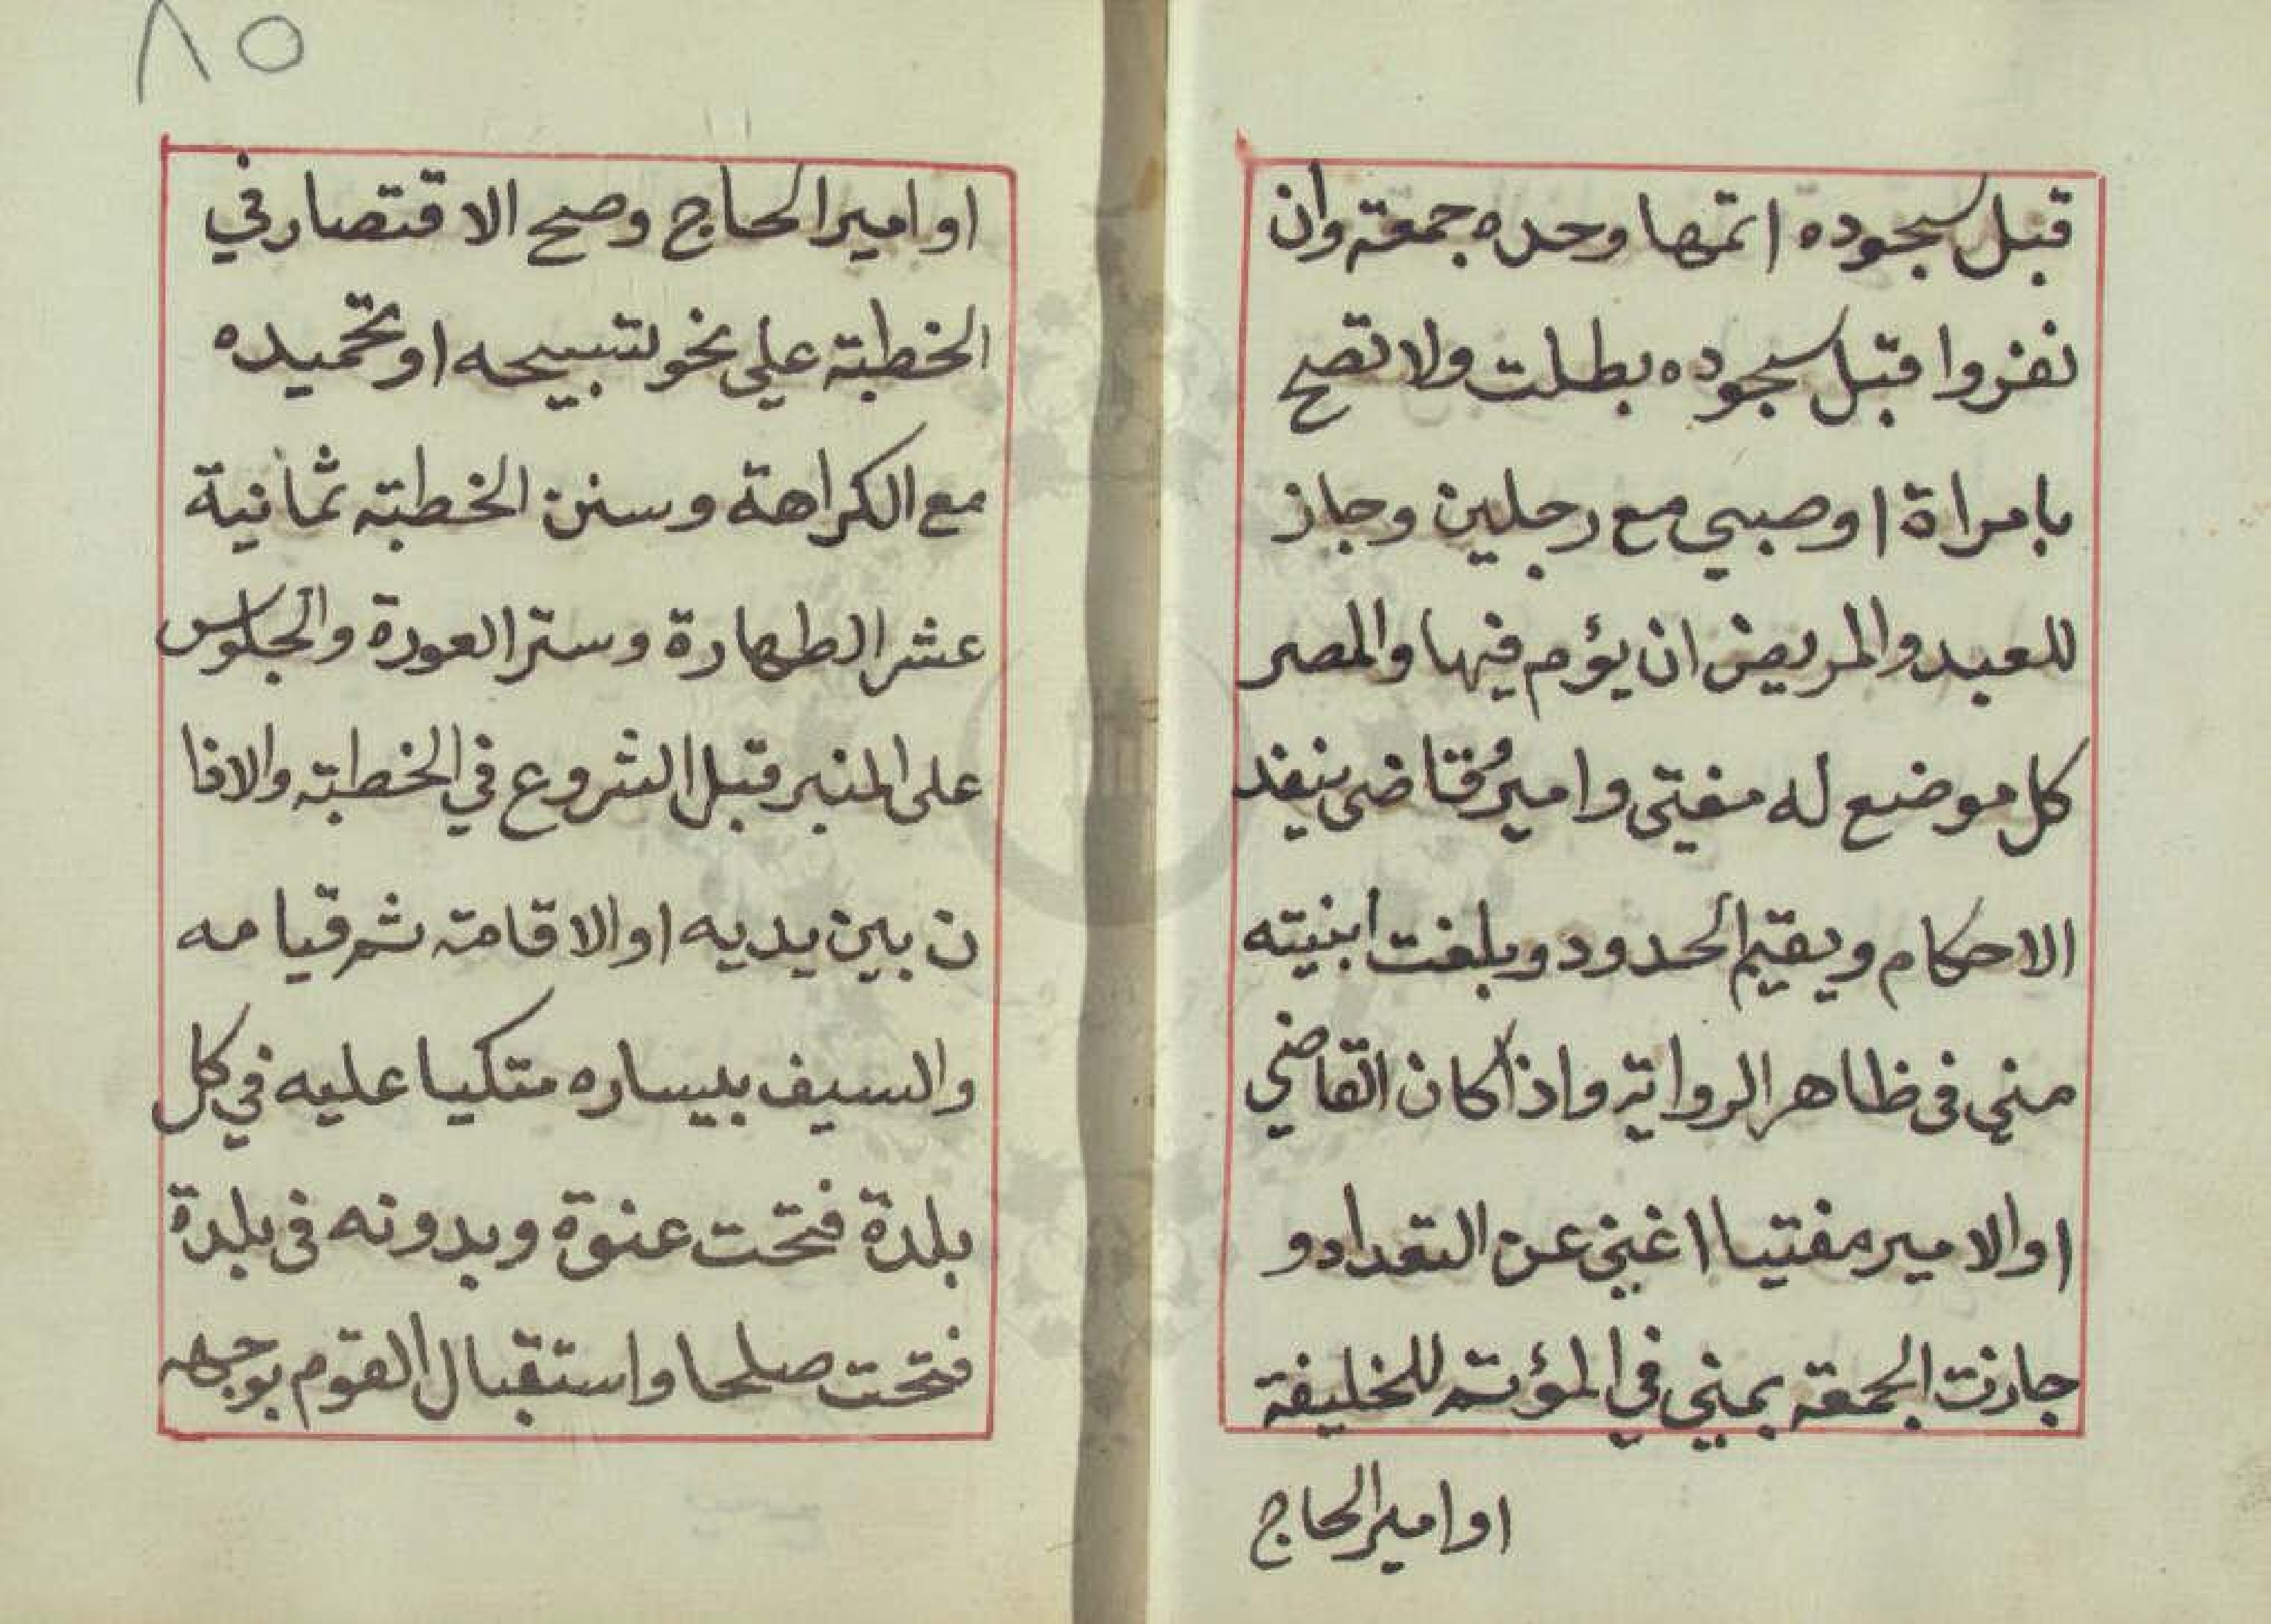 قبل سجوده اتمها وحده جمعة وان
نفروا قبل سجوده بطلت ولا تصح
بامراة او صبي مع رجلين وجاز
للعبد والمريض ان يؤم فيها والمصر
كل موضع له مفتى وامير وقاضى ينفذ
الاحكام ويقيم الحدود وبلغت ابنيته
منى فى ظاهر الرواية واذا كان القاضي
او الامير مفتيا اغنى عن التعداد و
جازت الجمعة بمنى في المؤتمه للخليفة
او امير الحاج
٨٥
او امير الحاج وصح الاقتصار في
الخطبة على نحو تسبيحه او تحميده
مع الكراهة وسنن الخطبة ثمانية
عشر الطهارة وستر العورة والجلوس
على المنبر قبل الشروع في الخطبة والاذا
ن بين يديه او الاقامة ثم قيامه
والسيف بيساره متكيا عليه في كل
بلدة فتحت عنوة وبدونه فى بلدة
فتحت صلحا واستقبال القوم بوجهه